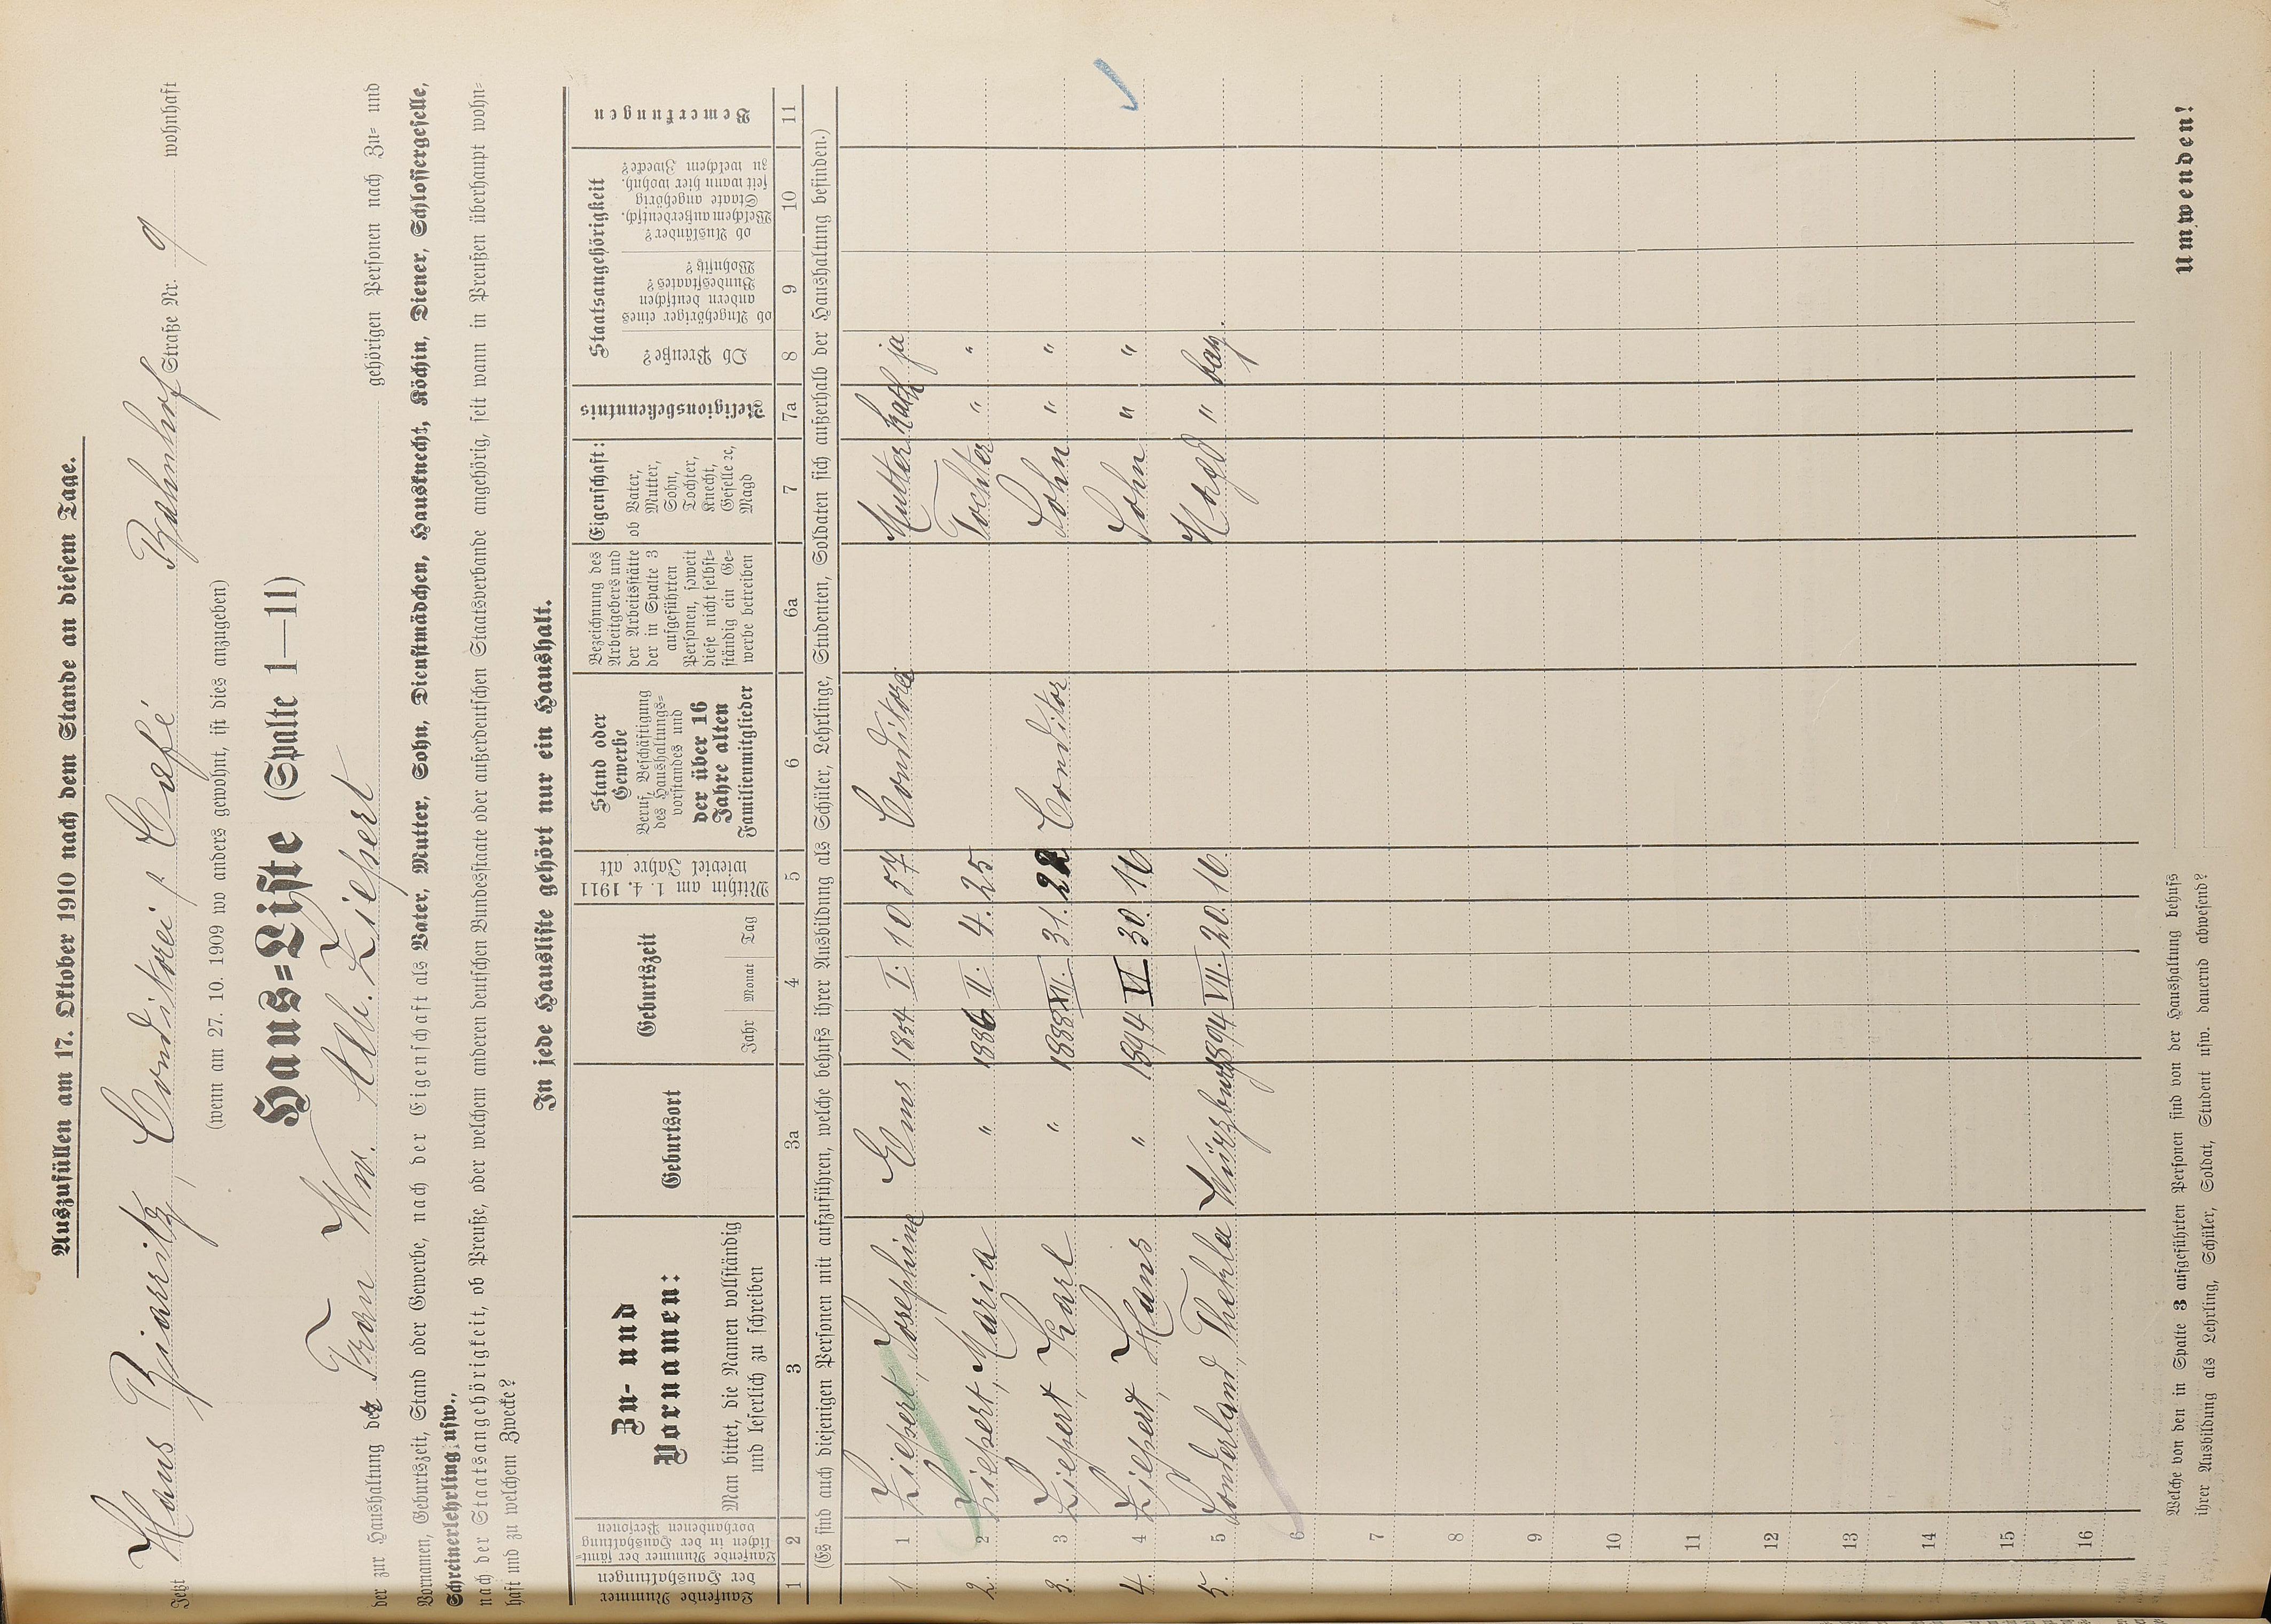 Auszufüllen am 17. Oktober 1910 nach dem Stande an diesem Tage.
Jetzt Haus Biarritz, Conditorei & Café Bahnhof Straße Nr. 9 wohnhaft
(wenn am 27. 10. 1909 wo anders gewohnt, ist dies anzugeben)
Haus=Liste (Spalte 1—11)
der zur Haushaltung der Frau Ww. Alb. Ziepert gehörigen Personen nach Zu= und
Vornamen, Geburtszeit, Stand oder Gewerbe, nach der Eigenschaft als Vater, Mutter, Sohn, Dienstmädchen, Hausknecht, Köchin, Diener, Schlossergeselle,
Schreinerlehrling usw.,
nach der Staatsangehörigkeit, ob Preuße, oder welchem anderen deutschen Bundesstaate oder außerdeutschen Staatsverbande angehörig, seit wann in Preußen überhaupt wohn=
haft und zu welchem Zwecke?
In jede Hausliste gehört nur ein Haushalt.
Laufende Nummer der Haushaltungen
Laufende Nummer der sämt=lichen in der Haushaltung vorhandenen Personen
Zu- und Vornamen:
Man bittet, die Namen vollständig und leserlich zu schreiben
Geburtsort
Geburtszeit
Jahr Monat Tag
Mithin am 1. 4. 1911 wieviel Jahre alt
Stand oder Gewerbe
Beruf, Beschäftigung des Haushaltungs=vorstandes und
der über 16 Jahre alten Familienmitglieder
Bezeichnung des Arbeitgebers und der Arbeitsstätte der in Spalte 3 aufgeführten Personen, soweit diese nicht selbst=ständig ein Ge=werbe betreiben
Eigenschaft:
ob Vater, Mutter, Sohn, Tochter, Knecht, Geselle ꝛc, Magd
Religionsbekenntnis
Staatsangehörigkeit
Ob Preuße?
ob Angehöriger eines andern deutschen Bundesstaates? Wohnsitz?
ob Ausländer? Welchem außerdeutsch. Staate angehörig seit wann hier wohnh. zu welchem Zwecke?
Bemerkungen
1 2 3 3a 4 5 6 6a 7 7a 8 9 10 11
(Es sind auch diejenigen Personen mit aufzuführen, welche behufs ihrer Ausbildung als Schüler, Lehrlinge, Studenten, Soldaten sich außerhalb der Haushaltung befinden.)
1. 1 Ziepert, Josephine Ems 1854 I. 10. 57 Conditorei Mutter kath ja
2. 2 Ziepert, Maria " 1886 II. 4. 25 Tochter " "
3. 3 Ziepert, Karl " 1888 XII. 31. 22 Conditor Sohn " "
4. 4 Ziepert, Hans " 1894 VI 30. 16 Sohn " "
5. 5 Sonderland, Thekla Würzburg 1894 VII. 20. 16. Magd " bay.
6
7
8
9
10
11
12
13
14
15
16
Welche von den in Spalte 3 aufgeführten Personen sind von der Haushaltung behufs
ihrer Ausbildung als Lehrling, Schüler, Soldat, Student usw. dauernd abwesend?
Umwenden!